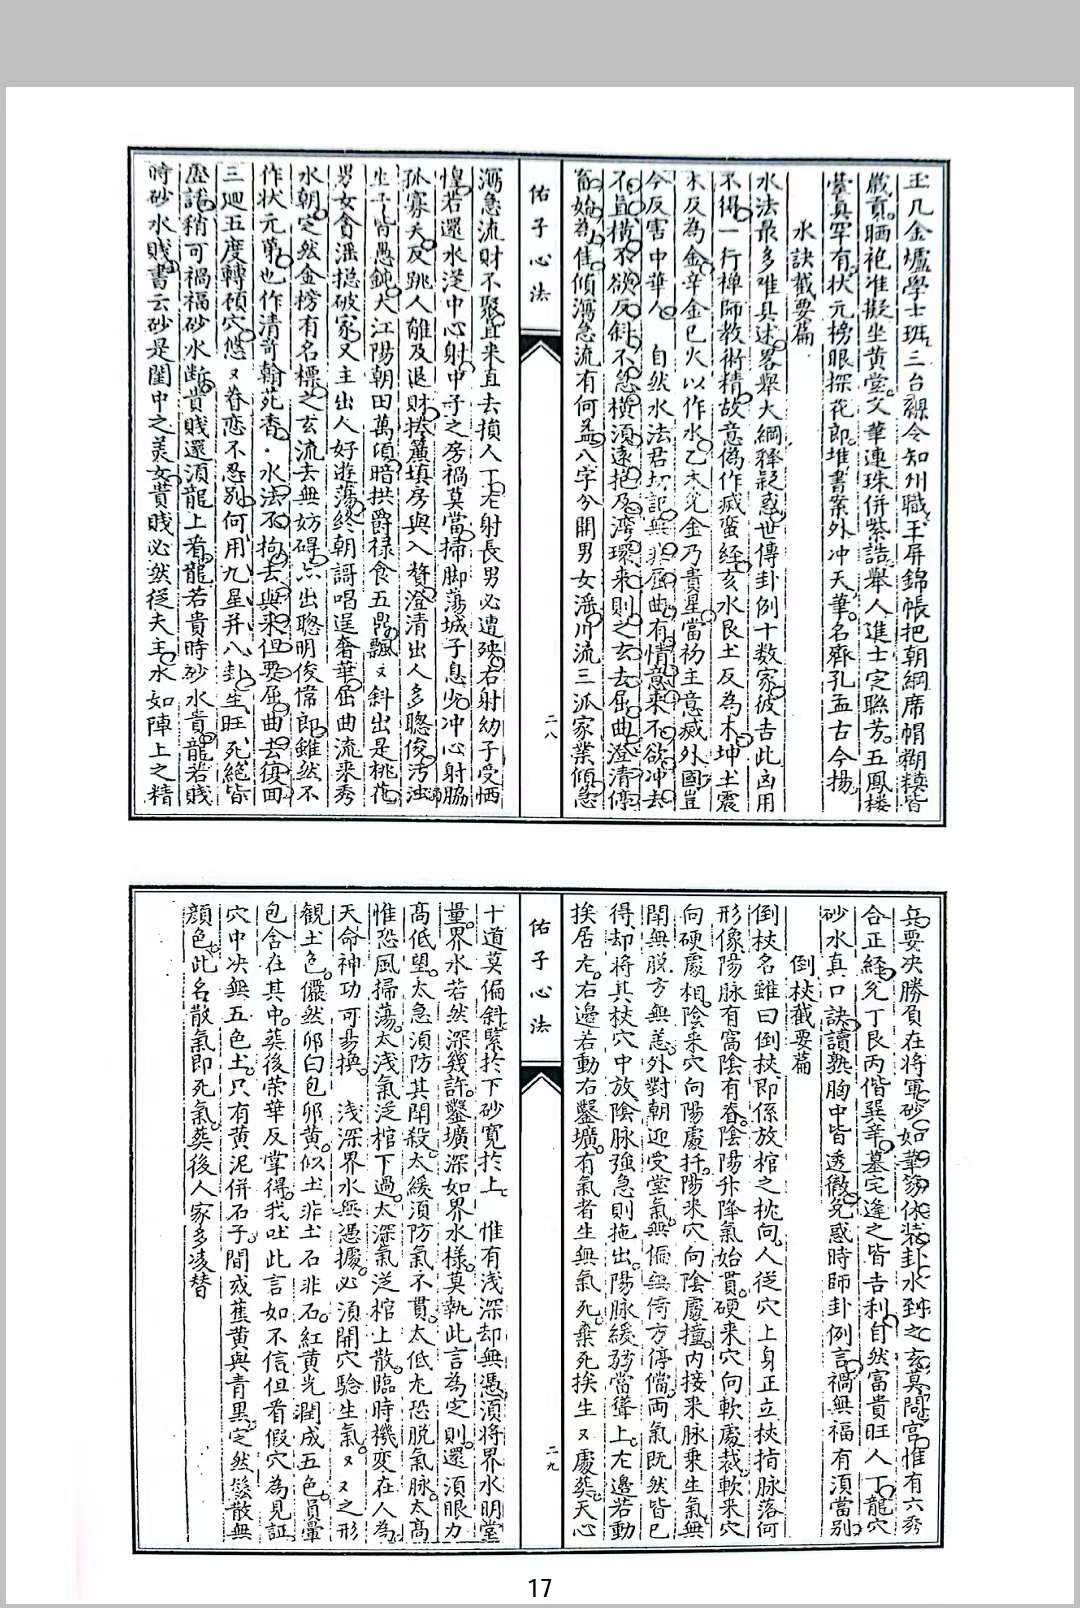 玉几金爐學士班三台縣令知州職玉屏錦帳把朝綱席帽糊糚皆
嚴貢晒袍准擬坐黄堂文華連珠併紫誥舉人進士定聯芳五鳳樓
臺真罕有狀元榜眼探花郎堆書案外冲天筆名齊孔孟古今揚
水訣截要篇
水法最多难具述畧舉大綱釋疑惑世傳卦例十数家彼吉此凶用
不得一行禅師教術精故意偽作滅蛮经亥水艮土反為木坤土震
木反為金辛金巳火以作水乙木兊金乃貴星當初主意滅外國豈
今反害中華人 自然水法君切記無非屈曲有情意來不欲冲去
不直横不欲反斜不忽横須遶抱及濟環来則之玄去屈曲澄清停
畜始為佳傾瀉急流有何益八字分開男女滛川流三派家業傾急
瀉急流財不聚直来直去損人丁左射長男必遭殃右射幼子受恓
惶若還水淀中心射中子之房禍莫當掃脚蕩城子息少冲心射脇
孤寡夭反跳人離及退財捲簾填房與入贅澄清出人多聰俊污浊
生子甞愚鈍大江陽朝田萬頃暗拱爵禄食五鼎飄又斜出是桃花
男女貪滛搃破家又主出人好遊蕩终朝謌唱逞奢華屈曲流来秀
水朝定然金榜有名標之玄流去無妨碍亦出聰明俊偉郎雖然不
作状元第也作清奇翰苑香水法不拘去與来但要屈曲去復囬
三廻五度轉碩穴悠又眷恋不忍别何用九星并八卦生旺死絕皆
虚話稍可禍福砂水断貴賤還湏龍上看龍若貴時砂水貴龍若賤
時砂水賤書云砂是閨中之美女貴賤必然從夫主水如陣上之精
佑子心法
二八
兵要决勝負在将軍砂如華篆休装卦水到之玄莫問宫惟有六秀
合正経兊丁艮丙偕巽辛墓宅逢之皆吉利自然富貴旺人丁龍穴
砂水真口訣讀熟胸中皆透徹免惑時師卦例言禍無福有須當别
倒杖截要篇
倒杖名雖曰倒杖即係放棺之枕向人従穴上身正立杖指脉落何
形像陽脉有窩陰有眷陰陽升降氣始貫硬来穴向軟處裁軟来穴
向硬處相陰来穴向陽處扦陽来穴向陰處撞内接来脉乗生氣無
閉無脱方無恙外對朝迎受堂氣無偏無倚方停儅两氣既然皆已
得却将其杖穴中放陰脉强急則拖出陽脉緩弱當聳上左邉若動
挨居左右邉若動右鑿壙有氣者生無氣死棄死挨生又處葬天心
十道莫偏斜緊扵下砂寬扵上 惟有浅深却無憑須将界水明堂
量界水若然深幾許鑿壙深如界水様莫執此言為定則還須眼力
高低望太急須防其閉殺太緩須防氣不貫太低尢恐脱氣脉太高
惟恐風掃荡太浅氣泛棺下過太深氣泛棺上散臨時機変在人為
天命神功可易換 浅深界水無憑據必須開穴驗生氣又又之形
観土色儼然卵曰包卵黄似土非土石非石紅黄光潤成五色員暈
包含在其中葬後榮華反掌得我吐此言如不信但看假穴為見証
穴中决無五色土只有黄泥併石子間或蕉黄與青黒定然鬆散無
顔色此名散氣即死氣葬後人家多凌替
佑子心法
二九
17